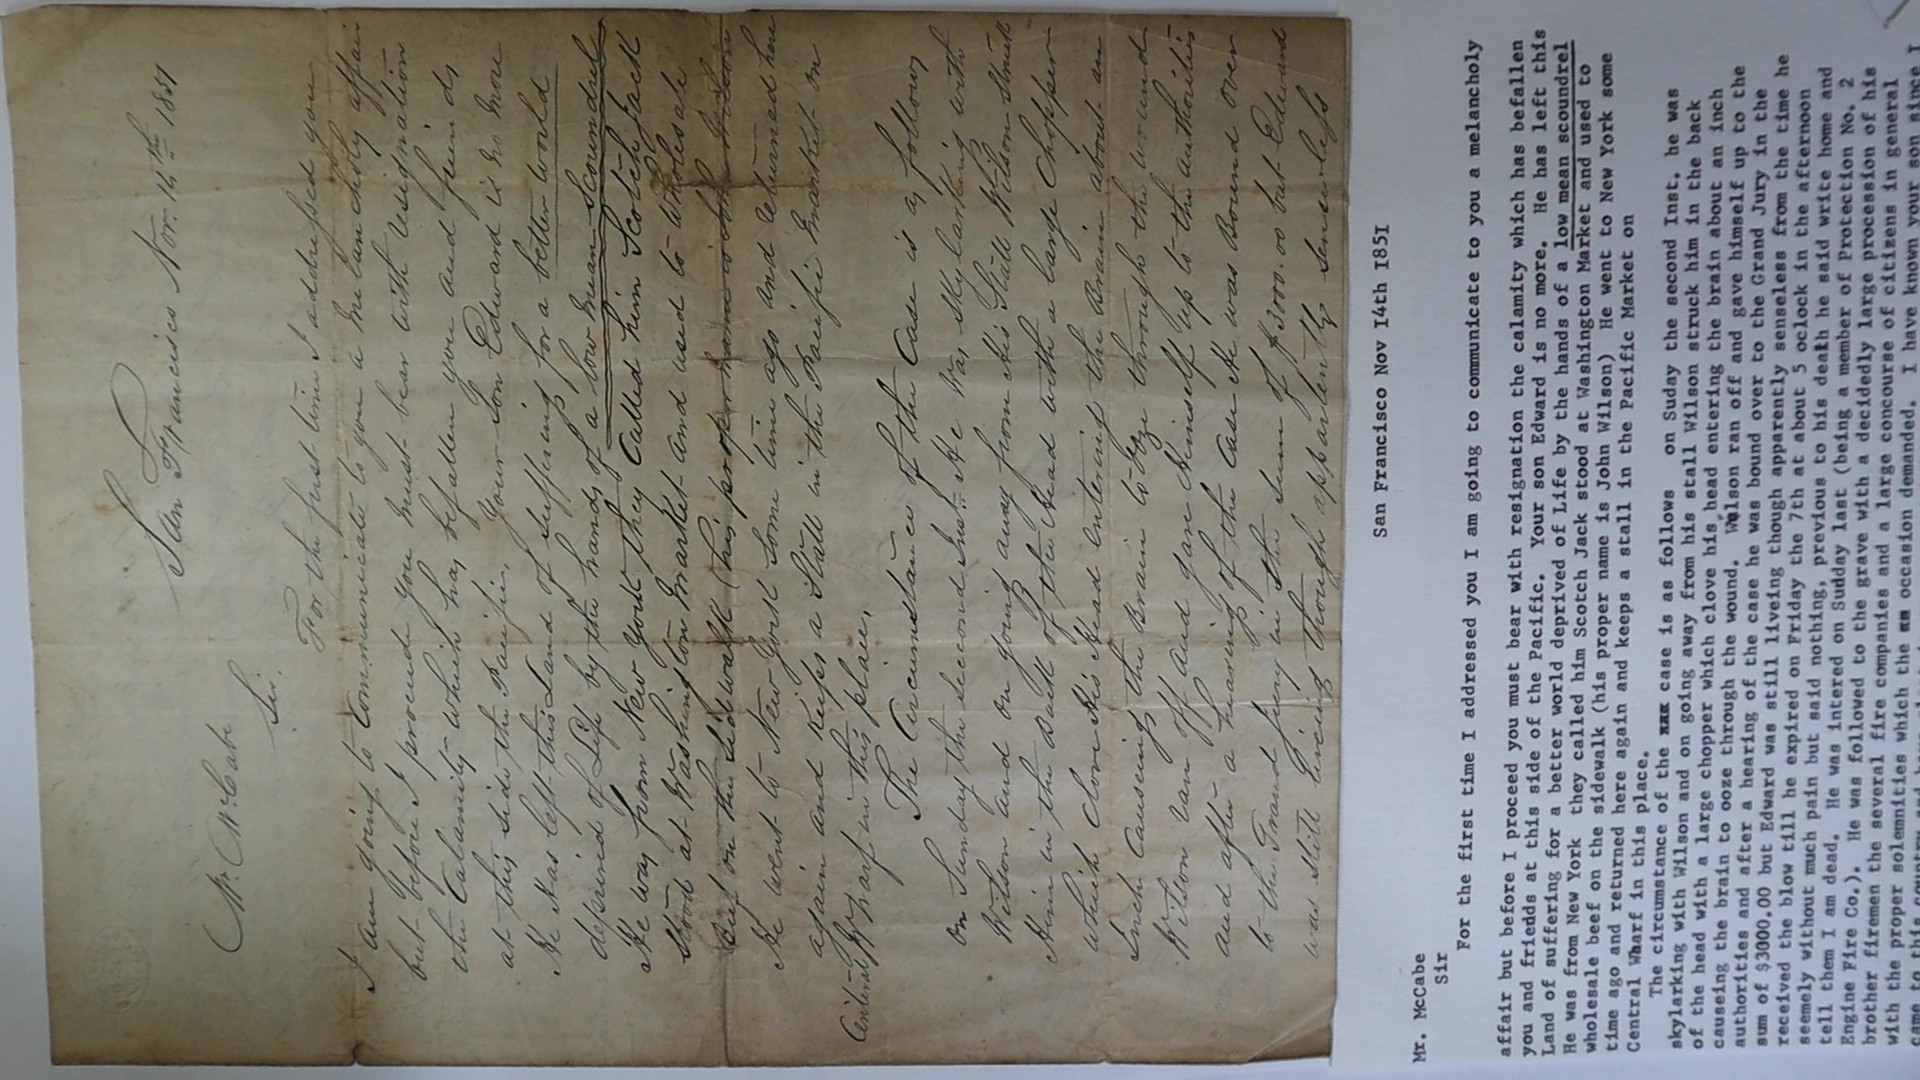 San Francisco Nov. 14th 1851
Mr. McCabe
Sir.
For the first time I addressed you
I am going to communicate to you a melancholy affair
but before I proceede you must bear with resignation
the Calamity which has befallen you and friends
at this side the Pacific. Your son Edward is no more
He has left this Land of suffering for a better world
deprived of Life by the hands of a low mean scoundrel
He was from New York they Called him Scotch Jack
Stood at Washington Market and used to wholesale
Beef on the sidewalk (his proper name is John Wilson
He went to New York some time ago and returned here
again and Keeps a Stall in the Pacific Market on
Central Wharf in this place.
The Circumstance of the Case is as follows
On Sunday the seccond Inst. He was skylarking with
Wilson and on going away from His Stall Wilson struck
Him in the back of the Head with a large Chopper
which Clove His Head entering the Brain about an
Inch Causeing the Brain to ooze through the wound
Wilson ran off and gave Himself up to the authorities
and after a heareing of the Case He was Bound over
to the Grand jury in the sum of $3000.00 but Edward
was still liveing though apparently senseless
San Francisco Nov I4th I85I
Mr. McCabe
Sir
For the first time I addressed you I am going to communicate to you a melancholy
affair but before I proceed you must bear with resignation the calamity which has befallen
you and frieds at this side of the Pacific. Your son Edward is no more. He has left this
Land of suffering for a better world deprived of Life by the hands of a low mean scoundrel
He was from New York they called him Scotch Jack stood at Washington Market and used to
wholesale beef on the sidewalk (his proper name is John Wilson) He went to New York some
time ago and returned here again and keeps a stall in the Pacific Market on
Central Wharf in this place.
The circumstance of the case is as follows on Suday the second Inst. he was
skylarking with Wilson and on going away from his stall Wilson struck him in the back
of the head with a large chopper which clove his head entering the brain about an inch
causeing the brain to ooze through the wound. Wilson ran off and gave himself up to the
authorities and after a hearing of the case he was bound over to the Grand Jury in the
sum of $3000.00 but Edward was still liveing though apparently senseless from the time he
received the blow till he expired on Friday the 7th at about 5 oclock in the afternoon
seemely without much pain but said nothing, previous to his death he said write home and
tell them I am dead. He was intered on Sudday last (being a member of Protection No. 2
Engine Fire Co.). He was followed to the grave with a decidedly large procession of his
brother firemen the several fire companies and a large concourse of citizens in general
with the proper solemnities which the occasion demanded. I have known your son since I
came to this country and